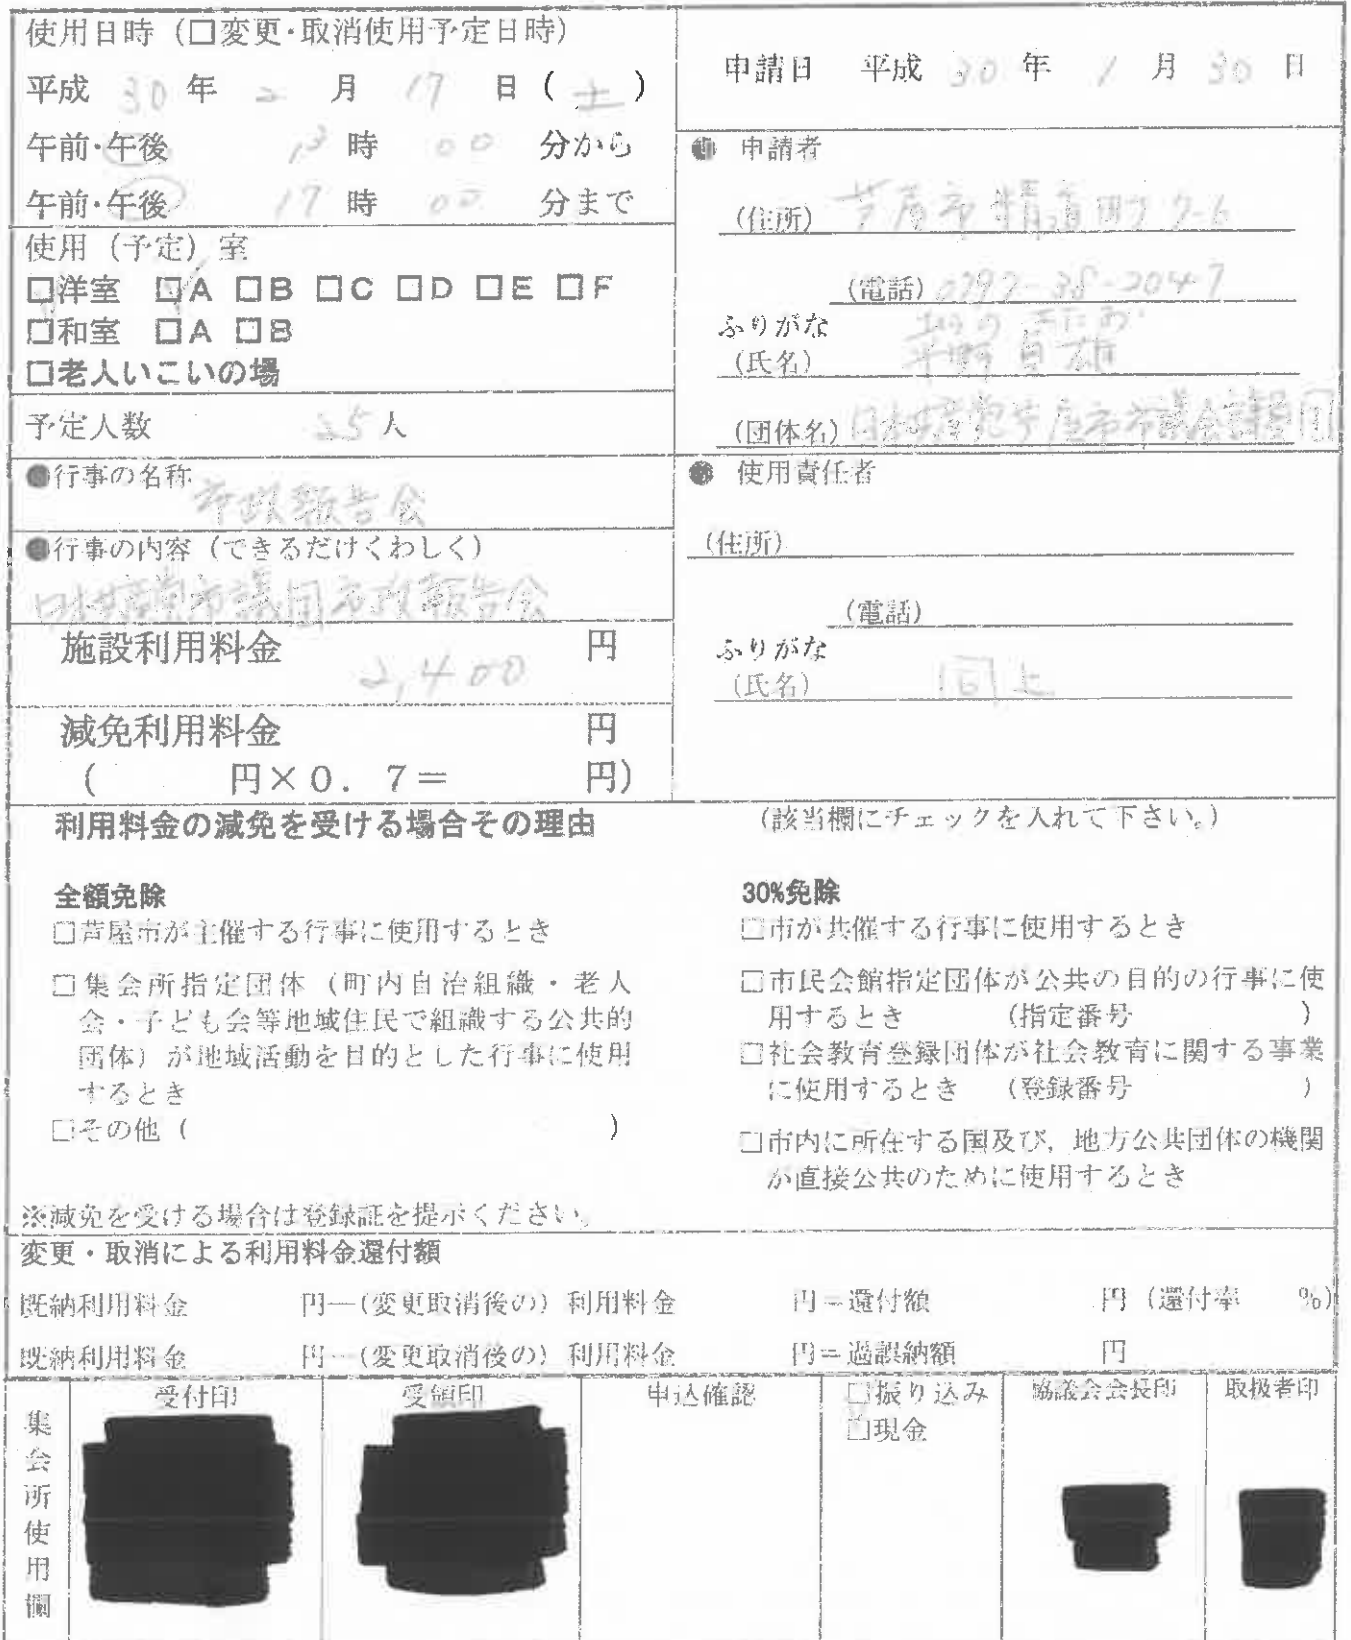 使用日時（□変更・取消使用予定日時）
平成 30 年 2 月 17 日（土）
午前・午後 13 時 00 分から
午前・午後 17 時 00 分まで
使用（予定）室
□洋室 □A □B □C □D □E □F
□和室 □A □B
□老人いこいの場
予定人数 25 人
●行事の名称
市政報告会
●行事の内容（できるだけくわしく）
日本共産党市議団市政報告会
施設利用料金 2,400 円
減免利用料金 円
（ 円×0．7＝ 円）
申請日 平成 30 年 1 月 30 日
● 申請者
（住所） 芦屋市精道町7-6
（電話） 0797-38-2047
ふりがな
（氏名） 平野貞雄
（団体名） 日本共産党芦屋市市議会議員団
● 使用責任者
（住所）
（電話）
ふりがな
（氏名） 同上
利用料金の減免を受ける場合その理由 （該当欄にチェックを入れて下さい。）
全額免除
□芦屋市が主催する行事に使用するとき
□集会所指定団体（町内自治組織・老人
会・子ども会等地域住民で組織する公共的
団体）が地域活動を目的とした行事に使用
するとき
□その他（ ）
30%免除
□市が共催する行事に使用するとき
□市民会館指定団体が公共の目的の行事に使
用するとき （指定番号 ）
□社会教育登録団体が社会教育に関する事業
に使用するとき （登録番号 ）
□市内に所在する国及び，地方公共団体の機関
が直接公共のために使用するとき
※減免を受ける場合は登録証を提示ください。
変更・取消による利用料金還付額
既納利用料金 円―（変更取消後の）利用料金 円＝還付額 円（還付率 %）
既納利用料金 円―（変更取消後の）利用料金 円＝過誤納額 円
集会所使用欄
受付印 受領印 申込確認 □振り込み 協議会会長印 取扱者印
□現金